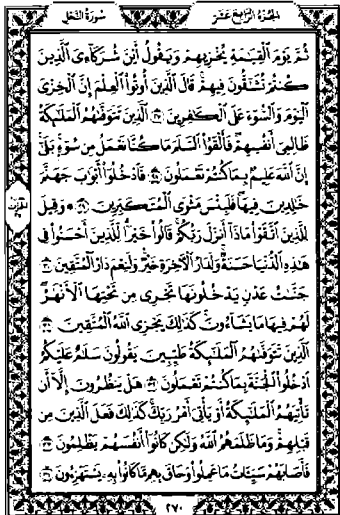 الجزء الرابع عشر
سورة النحل
ثُمَّ يَوْمَ ٱلْقِيَٰمَةِ يُخْزِيهِمْ وَيَقُولُ أَيْنَ شُرَكَآءِىَ ٱلَّذِينَ
كُنتُمْ تُشَٰٓقُّونَ فِيهِمْ قَالَ ٱلَّذِينَ أُوتُوا۟ ٱلْعِلْمَ إِنَّ ٱلْخِزْىَ
ٱلْيَوْمَ وَٱلسُّوٓءَ عَلَى ٱلْكَٰفِرِينَ ٢٧ ٱلَّذِينَ تَتَوَفَّىٰهُمُ ٱلْمَلَٰٓئِكَةُ
ظَالِمِىٓ أَنفُسِهِمْ فَأَلْقَوُا۟ ٱلسَّلَمَ مَا كُنَّا نَعْمَلُ مِن سُوٓءٍۭ بَلَىٰٓ
إِنَّ ٱللَّهَ عَلِيمٌۢ بِمَا كُنتُمْ تَعْمَلُونَ ٢٨ فَٱدْخُلُوٓا۟ أَبْوَٰبَ جَهَنَّمَ
خَٰلِدِينَ فِيهَا فَلَبِئْسَ مَثْوَى ٱلْمُتَكَبِّرِينَ ٢٩ ۞ وَقِيلَ
لِلَّذِينَ ٱتَّقَوْا۟ مَاذَآ أَنزَلَ رَبُّكُمْ قَالُوا۟ خَيْرًا لِّلَّذِينَ أَحْسَنُوا۟ فِى
هَٰذِهِ ٱلدُّنْيَا حَسَنَةٌ وَلَدَارُ ٱلْءَاخِرَةِ خَيْرٌ وَلَنِعْمَ دَارُ ٱلْمُتَّقِينَ ٣٠
جَنَّٰتُ عَدْنٍ يَدْخُلُونَهَا تَجْرِى مِن تَحْتِهَا ٱلْأَنْهَٰرُ
لَهُمْ فِيهَا مَا يَشَآءُونَ كَذَٰلِكَ يَجْزِى ٱللَّهُ ٱلْمُتَّقِينَ ٣١
ٱلَّذِينَ تَتَوَفَّىٰهُمُ ٱلْمَلَٰٓئِكَةُ طَيِّبِينَ يَقُولُونَ سَلَٰمٌ عَلَيْكُمُ
ٱدْخُلُوا۟ ٱلْجَنَّةَ بِمَا كُنتُمْ تَعْمَلُونَ ٣٢ هَلْ يَنظُرُونَ إِلَّآ أَن
تَأْتِيَهُمُ ٱلْمَلَٰٓئِكَةُ أَوْ يَأْتِىَ أَمْرُ رَبِّكَ كَذَٰلِكَ فَعَلَ ٱلَّذِينَ مِن
قَبْلِهِمْ وَمَا ظَلَمَهُمُ ٱللَّهُ وَلَٰكِن كَانُوٓا۟ أَنفُسَهُمْ يَظْلِمُونَ ٣٣
فَأَصَابَهُمْ سَيِّـَٔاتُ مَا عَمِلُوا۟ وَحَاقَ بِهِم مَّا كَانُوا۟ بِهِۦ يَسْتَهْزِءُونَ ٣٤
٢٧٠